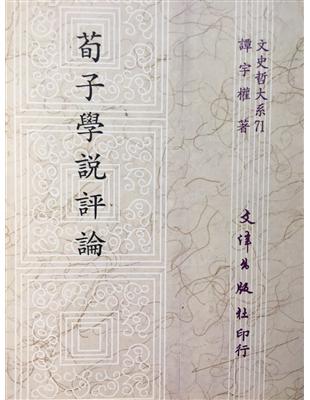 荀子學說評論
文史哲大系71
譚宇權著
文津出版社印行